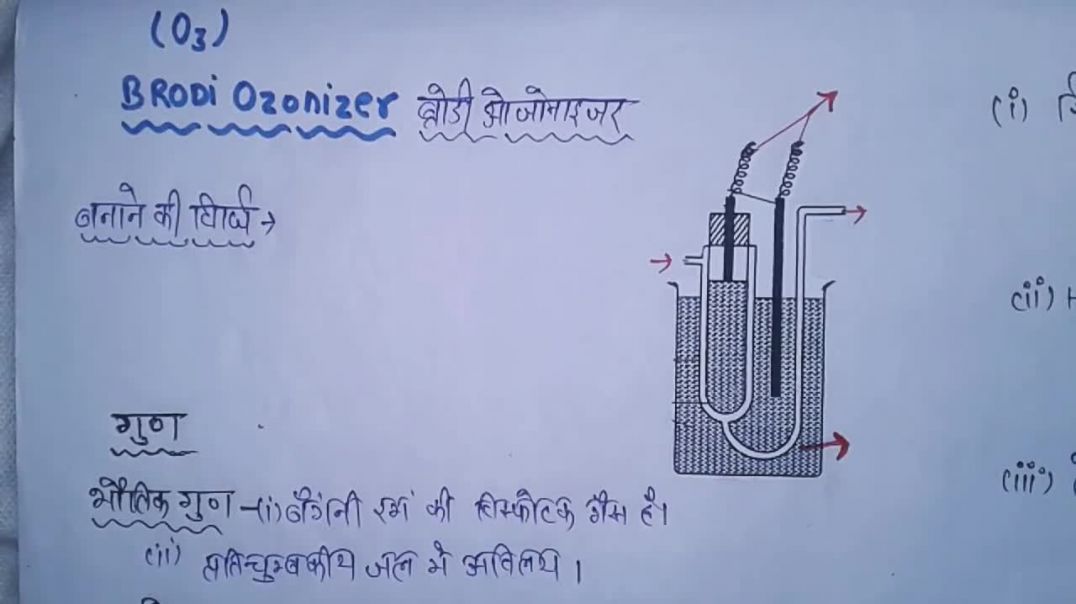 (O3)
BRODi Ozonizer ब्रोडी ओजोनाइजर
बनाने की विधि →
गुण
भौतिक गुण -(i) बैगंनी रंग की विस्फोटक गैस है।
(ii) प्रतिचुम्बकीय जल में अविलेय।
(i)
(ii) H
(iii)